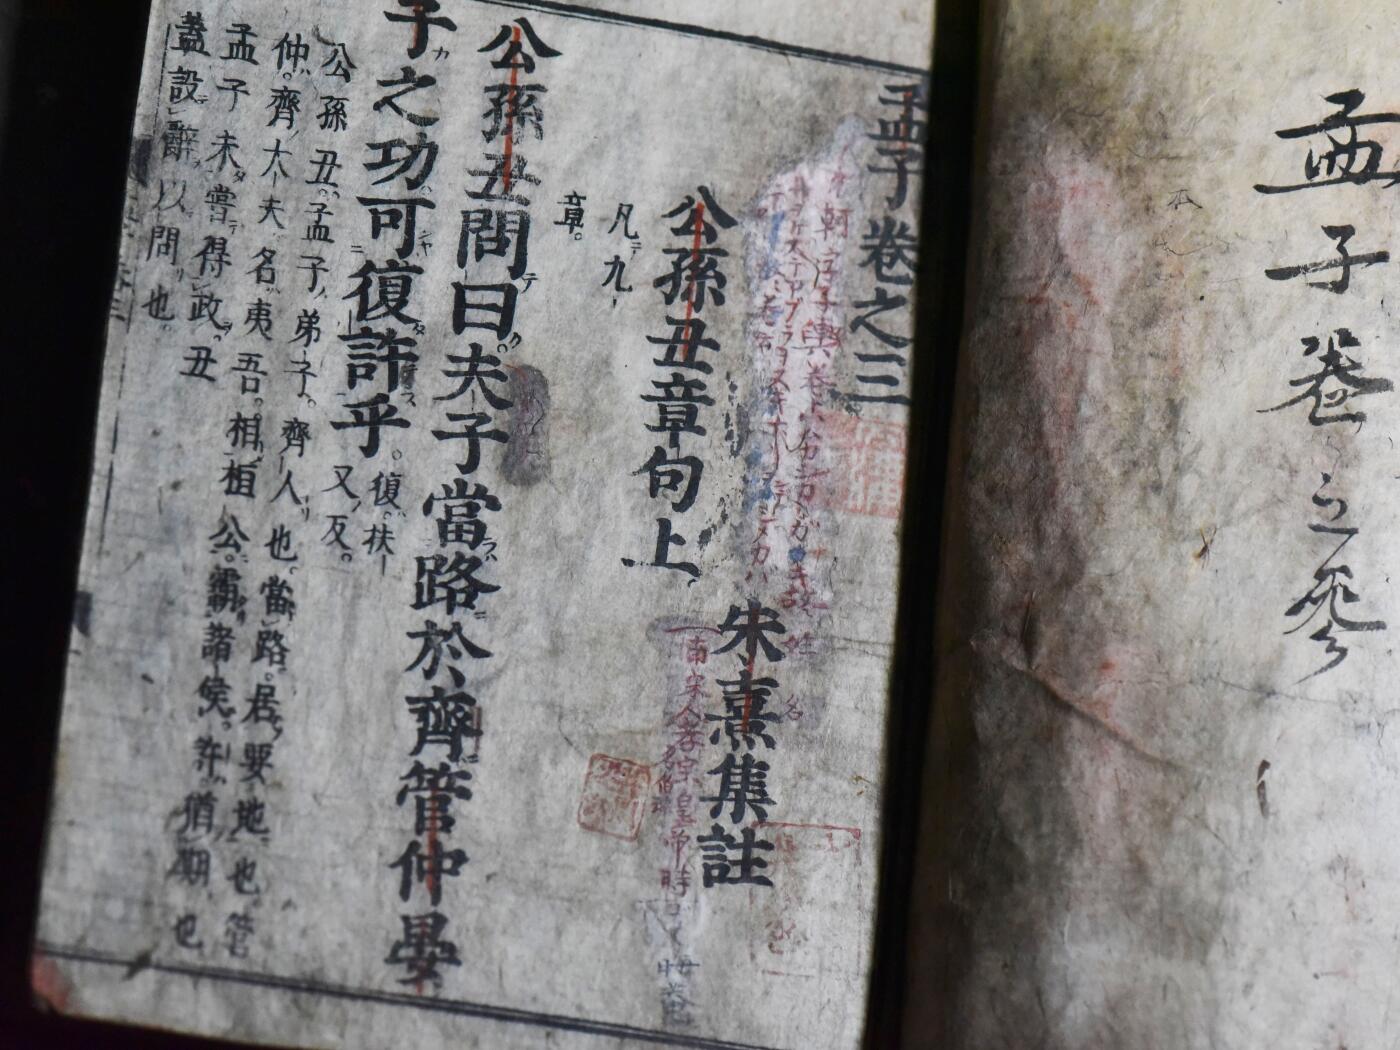 孟子卷之參
孟子卷之三
朱熹集註
公孫丑章句上
凡九
章。
公孫丑問曰夫子當路於齊管仲晏
子之功可復許乎
復。扶
又反。
公孫丑。孟子弟子。齊人也。當路。居要地也管
仲。齊大夫名夷吾。相桓公。霸諸侯。許猶期也
孟子未嘗得政。丑
蓋設辭以問也